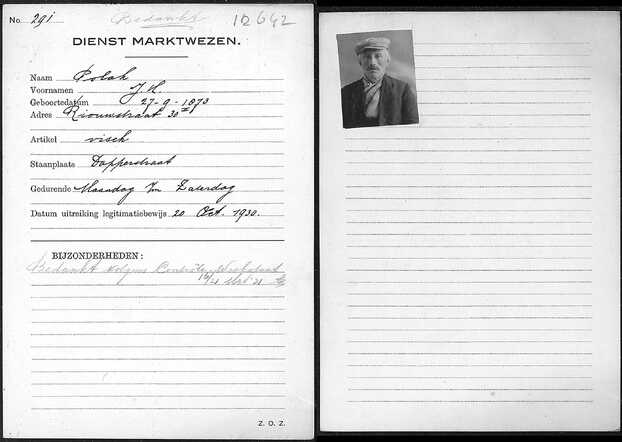 No. 291 Bedankt 12642
DIENST MARKTWEZEN.
Naam Polak
Voornamen J. H.
Geboortedatum 27-9-1873
Adres Riouwstraat 30
Artikel visch
Staanplaats Dapperstraat
Gedurende Maandag t/m Zaterdag
Datum uitreiking legitimatiebewijs 20 Oct. 1930.
BIJZONDERHEDEN:
Bedankt volgens Controle Weekstaat
Z. O. Z.